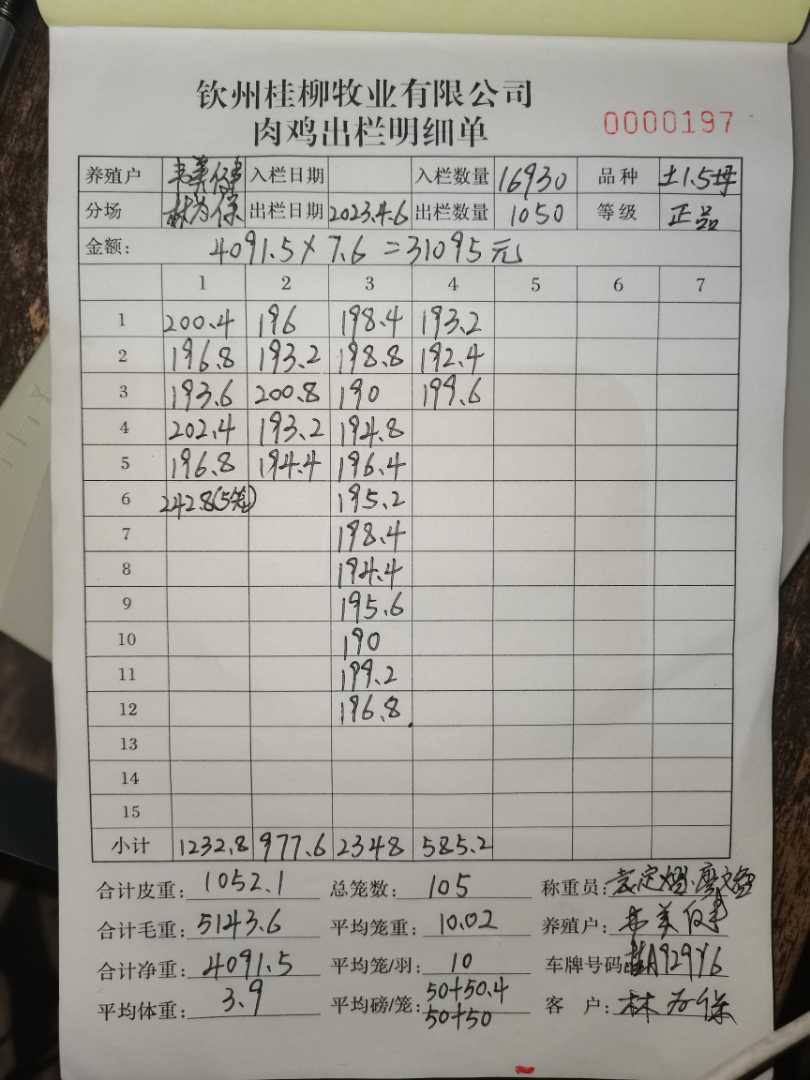 钦州桂柳牧业有限公司
肉鸡出栏明细单
0000197
养殖户 韦美健 入栏日期 入栏数量 16930 品种 土1.5母
分场 林为保 出栏日期 2023.4.6 出栏数量 1050 等级 正品
金额: 4091.5×7.6=31095元
1 2 3 4 5 6 7
1 200.4 196 198.4 193.2
2 196.8 193.2 198.8 192.4
3 193.6 200.8 190 199.6
4 202.4 193.2 194.8
5 196.8 194.4 196.4
6 242.8(5笼) 195.2
7 198.4
8 194.4
9 195.6
10 190
11 199.2
12 196.8
13
14
15
小计 1232.8 977.6 2348 585.2
合计皮重: 1052.1 总笼数: 105 称重员:
合计毛重: 5143.6 平均笼重: 10.02 养殖户: 韦美健
合计净重: 4091.5 平均笼/羽: 10 车牌号码: 桂A929Y6
平均体重: 3.9 平均磅/笼: 50+50.4 客 户: 林为保
50+50